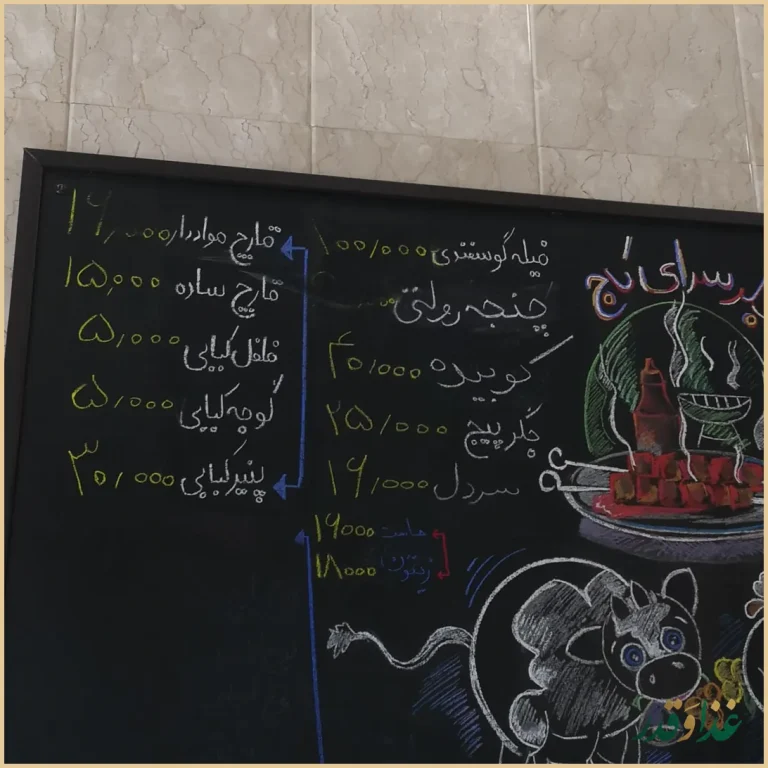 جگر سرای کُج
فیله گوسفندی ۱۰۰/۰۰۰
چنجه رولتی
کوبیده ۴۰/۰۰۰
جگر پیچ ۲۵/۰۰۰
سردل ۱۹/۰۰۰
ماست ۱۹۰۰۰
زیتون ۱۸۰۰۰
قارچ مواددار ۱۹/۰۰۰
قارچ ساده ۱۵/۰۰۰
فلفل کبابی ۵/۰۰۰
گوجه کبابی ۵/۰۰۰
پنیر کبابی ۳۰/۰۰۰
غذا و قدر